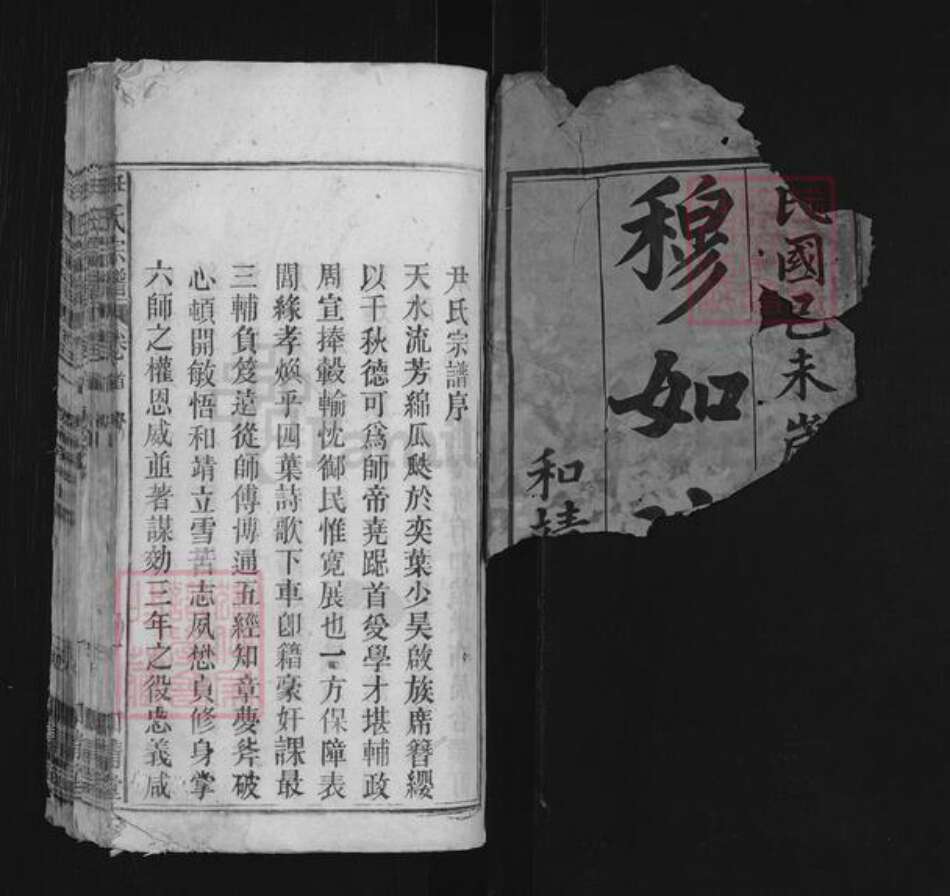 民國己未歲
穆如
和靖
尹氏宗譜序
天水流芳綿瓜瓞於奕葉少昊啟族席簪纓
以千秋德可為師帝堯跽首受學才堪輔政
周宣捧轂輸忱御民惟寬展也一方保障表
閭緣孝煥乎四葉詩歌下車卽籍豪奸課最
三輔負笈遠從師傅博通五經知章夢斧破
心頓開敏悟和靖立雪苦志夙懋貞修身掌
六師之權恩威並著謀効三年之役忠義咸
氏宗譜 卷首